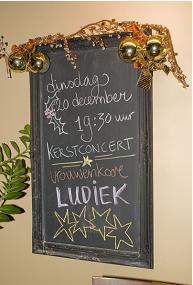 dinsdag
20 december
19:30 uur
KERSTCONCERT
vrouwenkoor
LUDIEK